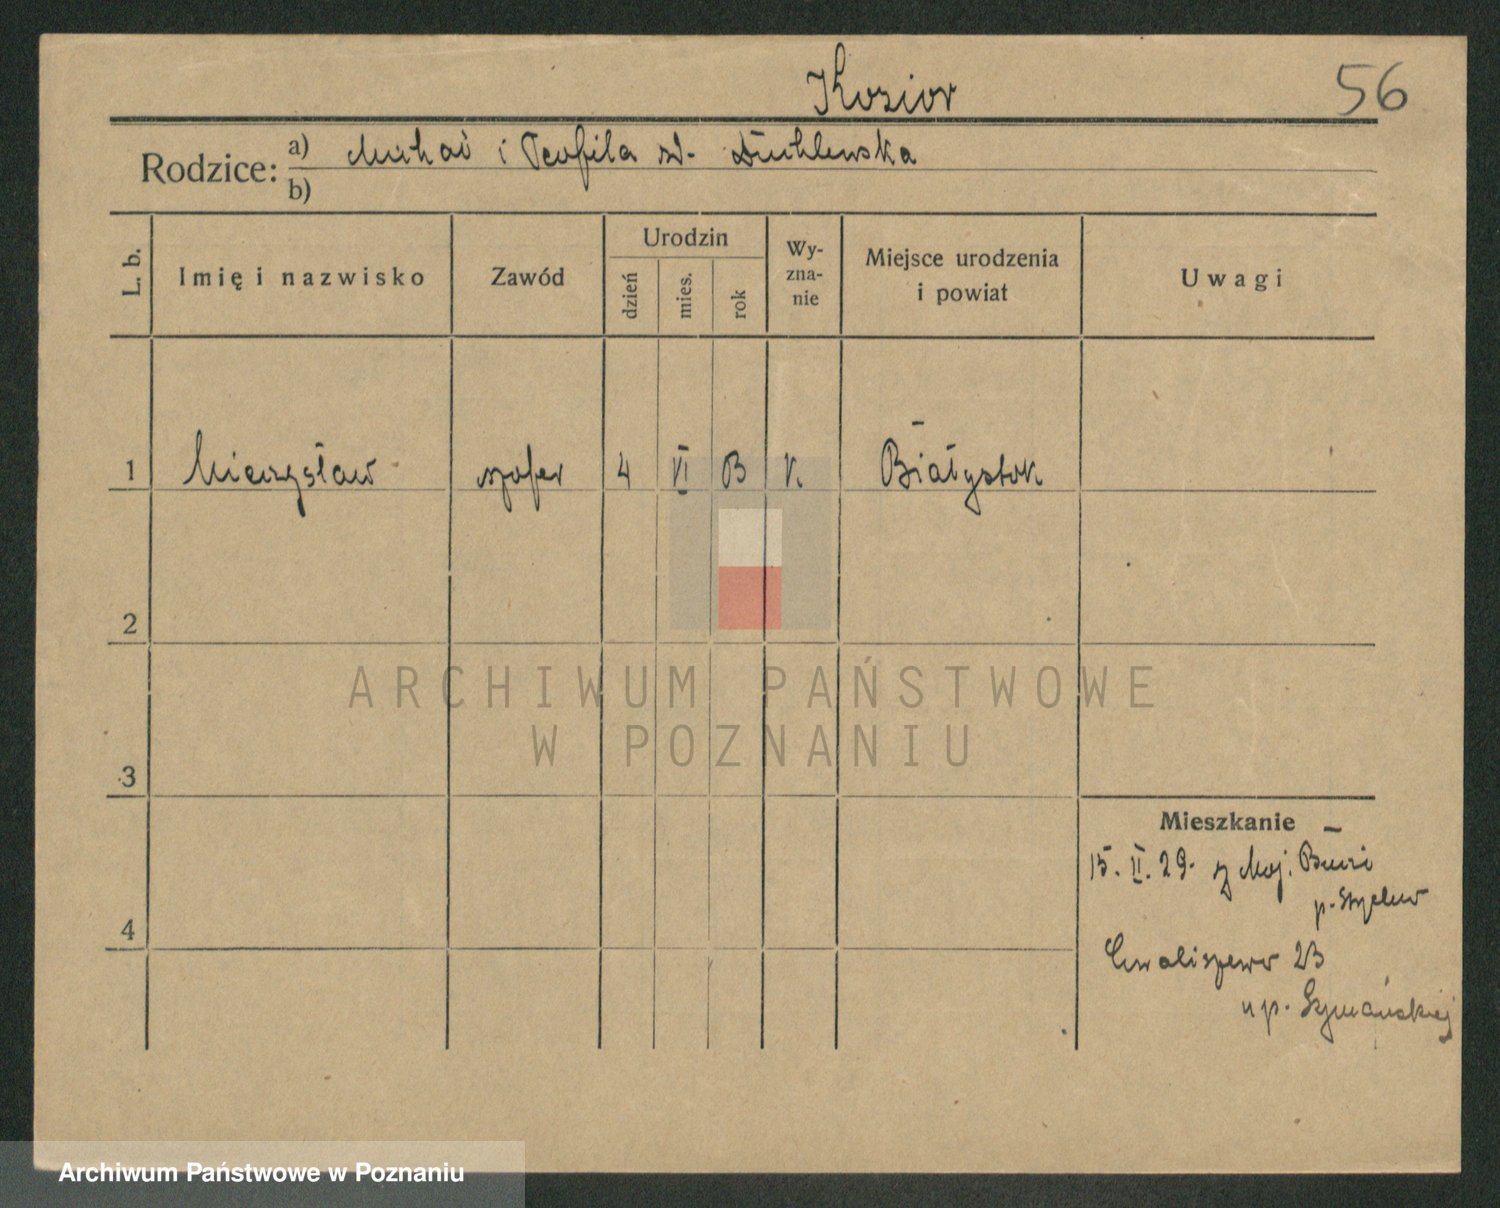 Kozior
56
Rodzice: a) Michał i Teofila zd.
b)
L. b.
Imię i nazwisko
Zawód
Urodzin
dzień
mies.
rok
Wy-
zna-
nie
Miejsce urodzenia
i powiat
Uwagi
1 Mieczysław szofer 4 VI K. Białystok
2
3
4
Mieszkanie
15. II. 29. z Maj.
Chwaliszewo 23
u p. Szymańskiej
ARCHIWUM PAŃSTWOWE
W POZNANIU
Archiwum Państwowe w Poznaniu